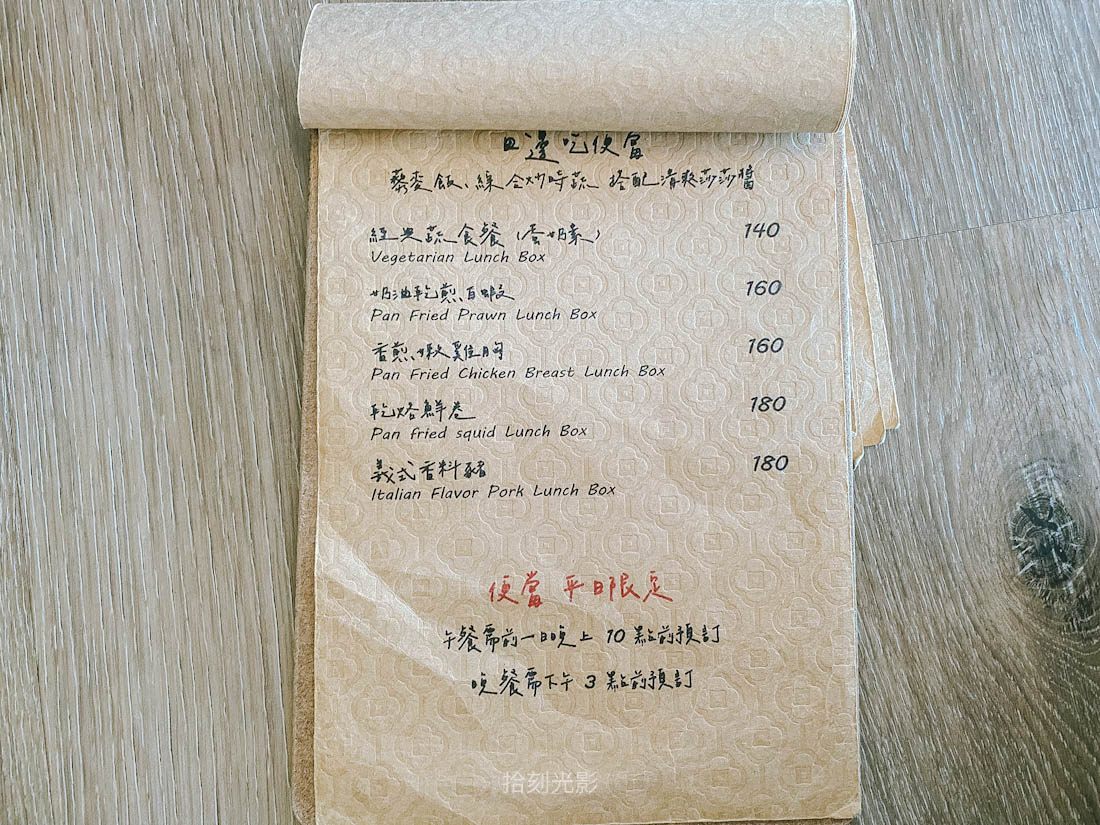 田邊吃便當
藜麥飯、綜合炒時蔬 搭配清爽莎莎醬
經典蔬食餐(蛋奶素) 140
Vegetarian Lunch Box
奶油乾煎白蝦 160
Pan Fried Prawn Lunch Box
香煎嫩雞胸 160
Pan Fried Chicken Breast Lunch Box
乾烙鮮卷 180
Pan fried squid Lunch Box
義式香料豬 180
Italian Flavor Pork Lunch Box
便當 平日限定
午餐需前一日晚上 10 點前預訂
晚餐需下午 3 點前預訂
拾刻光影